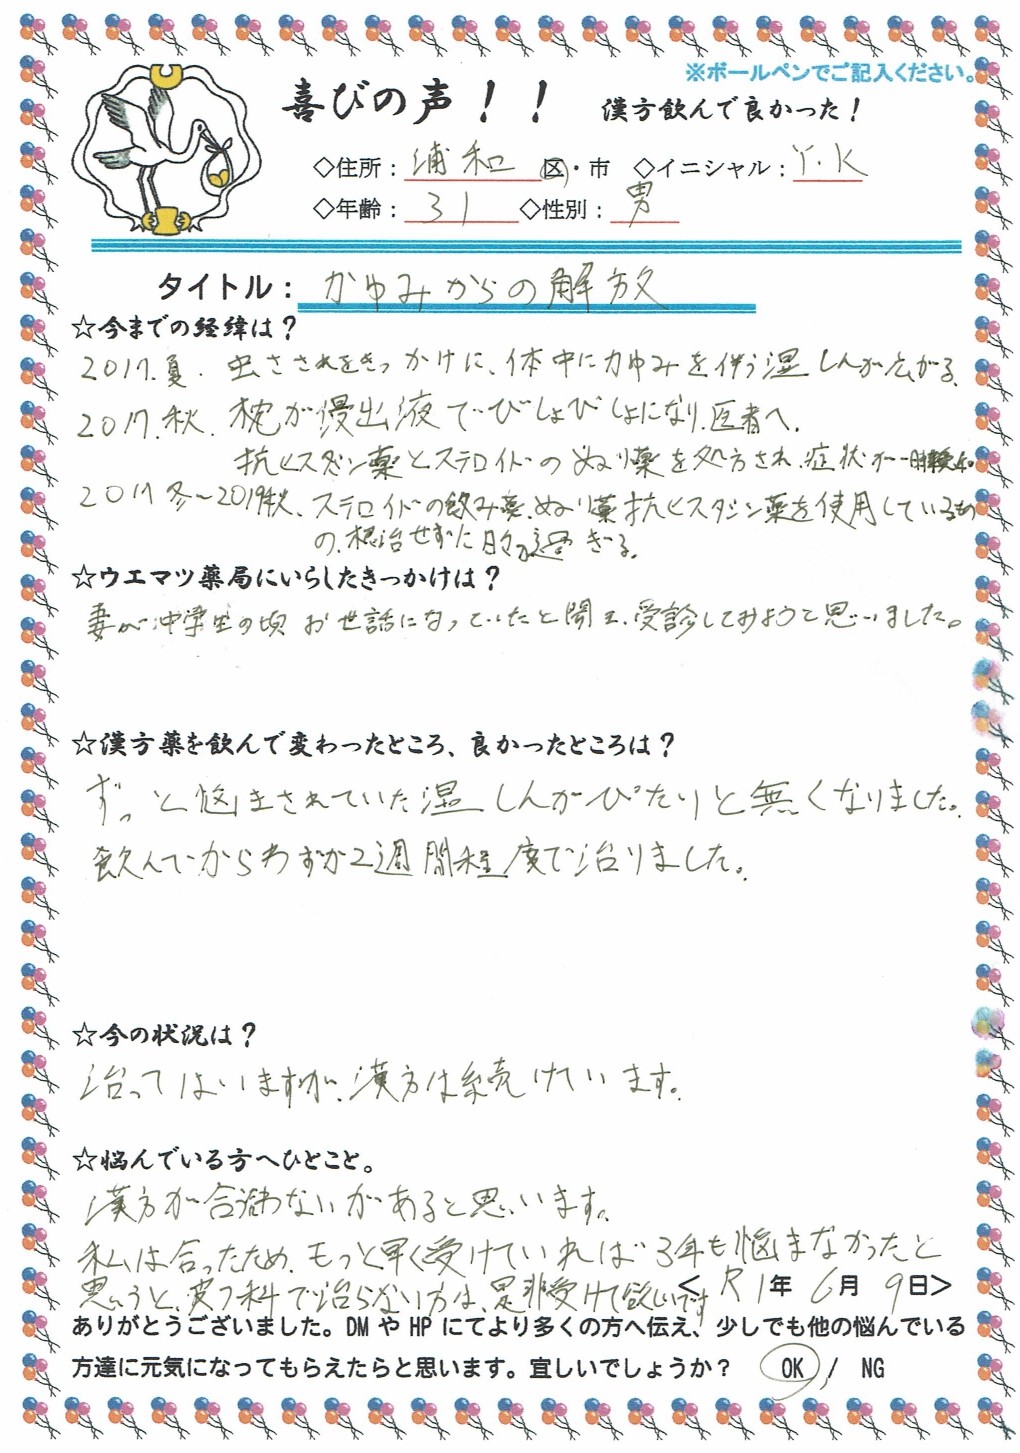 ※ボールペンでご記入ください。
喜びの声！！ 漢方飲んで良かった！
◇住所：浦和 区・市 ◇イニシャル：Y.K
◇年齢：31 ◇性別：男
タイトル：かゆみからの解放
☆今までの経緯は？
2017.夏. 虫さされをきっかけに、体中にかゆみを伴う湿しんが広がる。
2017.秋. 枕が浸出液でびしょびしょになり、医者へ。
抗ヒスタミン薬とステロイドのぬり薬を処方され、症状が一時
2017冬～2019秋、ステロイドの飲み薬、ぬり薬、抗ヒスタミン薬を使用しているも
の、根治せずに日々が過ぎる。
☆ウエマツ薬局にいらしたきっかけは？
妻が中学生の頃お世話になっていたと聞き、受診してみようと思いました。
☆漢方薬を飲んで変わったところ、良かったところは？
ずっと悩まされていた湿しんがぴたりと無くなりました。
飲んでからわずか2週間程度で治りました。
☆今の状況は？
治ってはいますが、漢方は続けています。
☆悩んでいる方へひとこと。
漢方が合う合わないがあると思います。
私は合ったため、もっと早く受けていれば3年も悩まなかったと
思うと、皮フ科で治らない方は、是非受けて欲しいです
＜R1年6月9日＞
ありがとうございました。DMやHPにてより多くの方へ伝え、少しでも他の悩んでいる
方達に元気になってもらえたらと思います。宜しいでしょうか？ OK / NG